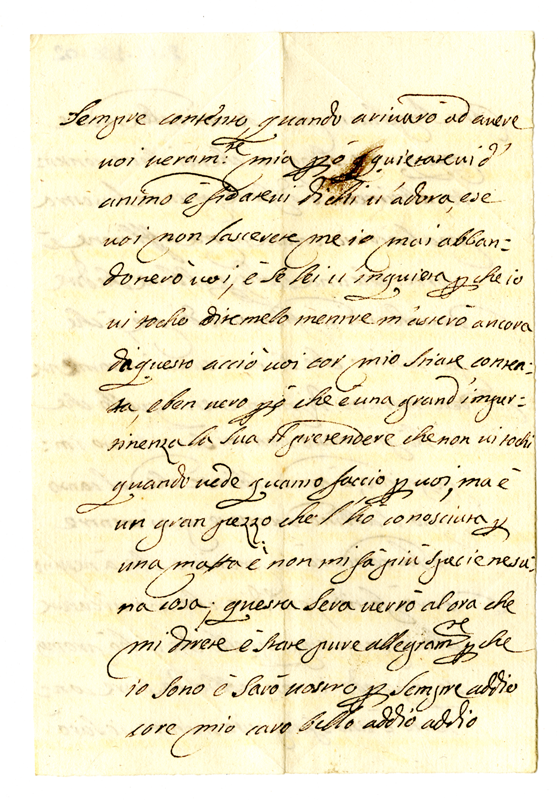 Sempre contento, quando arivarò ad avere
voi veram:te mia però quietatevi d'
animo è fidatevi di chi v'adora, e se
voi non lascerete me io mai abban=
donerò voi, è se lei v'inquieta p che io
vi tocho ditemelo mentre m'asterò ancora
da questo acciò voi cor mio stiate conten=
ta, e ben vero però che è una grand'imper=
tinenza la sua il pretendere che non vi tochi
quando vede quanto faccio p voi, ma è
un gran pezzo che l'hò conosciuta p
una matta è non mi fà più specie nesu=
na cosa; questa sera verrò al ora che
mi direte è state pure allegram:te p che
io sono è sarò vostro p sempre addio
core mio caro bello addio addio